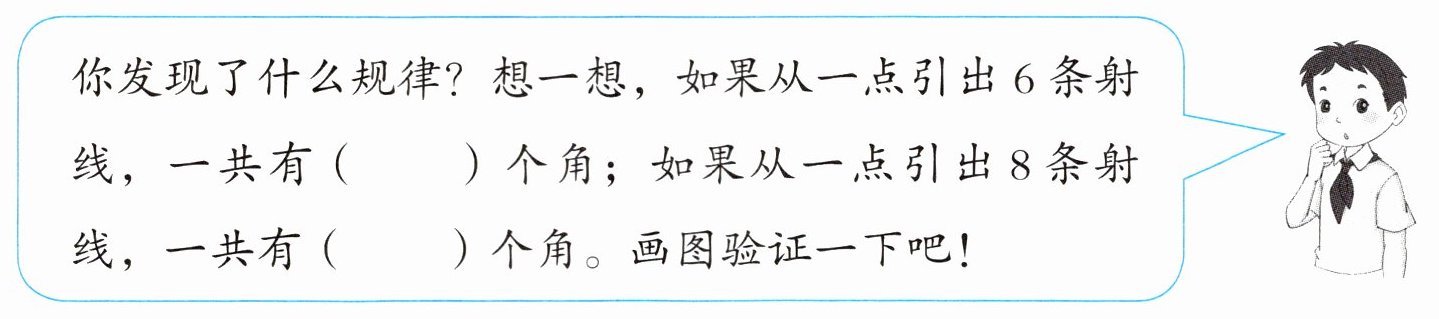 你发现了什么规律？想一想，如果从一点引出 6 条射
线，一共有（　　）个角；如果从一点引出 8 条射
线，一共有（　　）个角。画图验证一下吧！